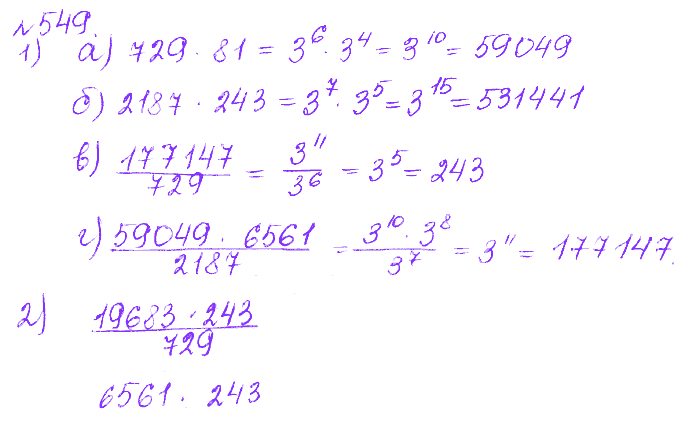 №549.
1) а) 729 · 81 = 3^6 · 3^4 = 3^10 = 59049
б) 2187 · 243 = 3^7 · 3^5 = 3^15 = 531441
в) 177147/729 = 3^11/3^6 = 3^5 = 243
г) (59049 · 6561)/2187 = (3^10 · 3^8)/3^7 = 3^11 = 177147.
2) (19683 · 243)/729
6561 · 243